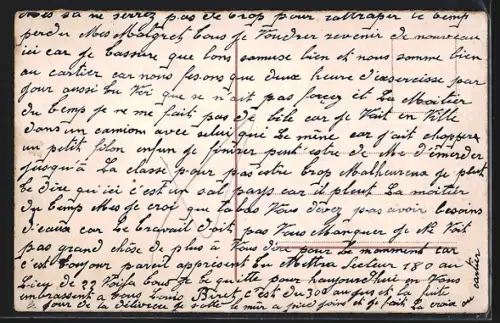 Mes sa ne serrez pas de trop pour rattraper le temp
perdu Mes Malgret tous je Voudrer revenir de nouveau
ici car je tassure que lons samuse bien et nous somme bien
au cartier car nous fesons que deux heure d'exsercisse par
jour aussi tu Voi que se n'ait pas forcez et La Moitier
du temp je ne me fait pas de bile car je Vait en Ville
dans un camion avec selui qui Le mène car j'ait chopper
un petit filon enfin je finirer peut'estre de Me d'émerder
jusqu'à La classe pour pas estre trop Malheureux je peut
te dire qui ici c'est un sal pays car il pleut La moitier
du temp Mes je croi que labas Vous devez pas avoir besoins
d'eaux car Le travail doit pas Vous Manquer je Ne Voit
pas grand chose de plus à Vous dire pour Le moment car
c'est toujour pareil apprisent tu Mettra Secteur 180 au
Lieu de 22 Voila tous je te quitte pour haujourd'hui en Vous
embrassent a tous Louis Biret c'est du 30 au jus et la fuite
Le jour de la délivrée je saute le mur a pied joint et je fait La croix au
cartier